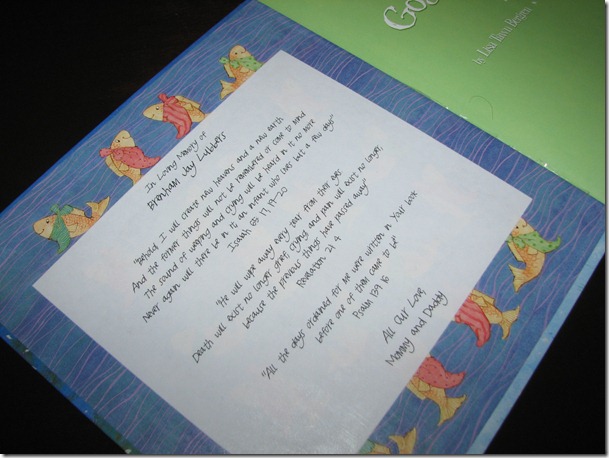 Go
by Lisa Tawn Bergren
In Loving Memory of
Brenham Jay Lubbers
"Behold, I will create new heavens and a new earth
And the former things will not be remembered or come to mind
The sound of weeping and crying will be heard in it no more
Never again will there be in it an infant who lives but a few days"
Isaiah 65 17, 19-20
"He will wipe away every tear from their eyes
Death will exist no longer, grief, crying and pain will exist no longer,
because the previous things have passed away"
Revelation 21 4
"All the days ordained for me were written in Your book
before one of them came to be"
Psalm 139 16
All Our Love,
Mommy and Daddy